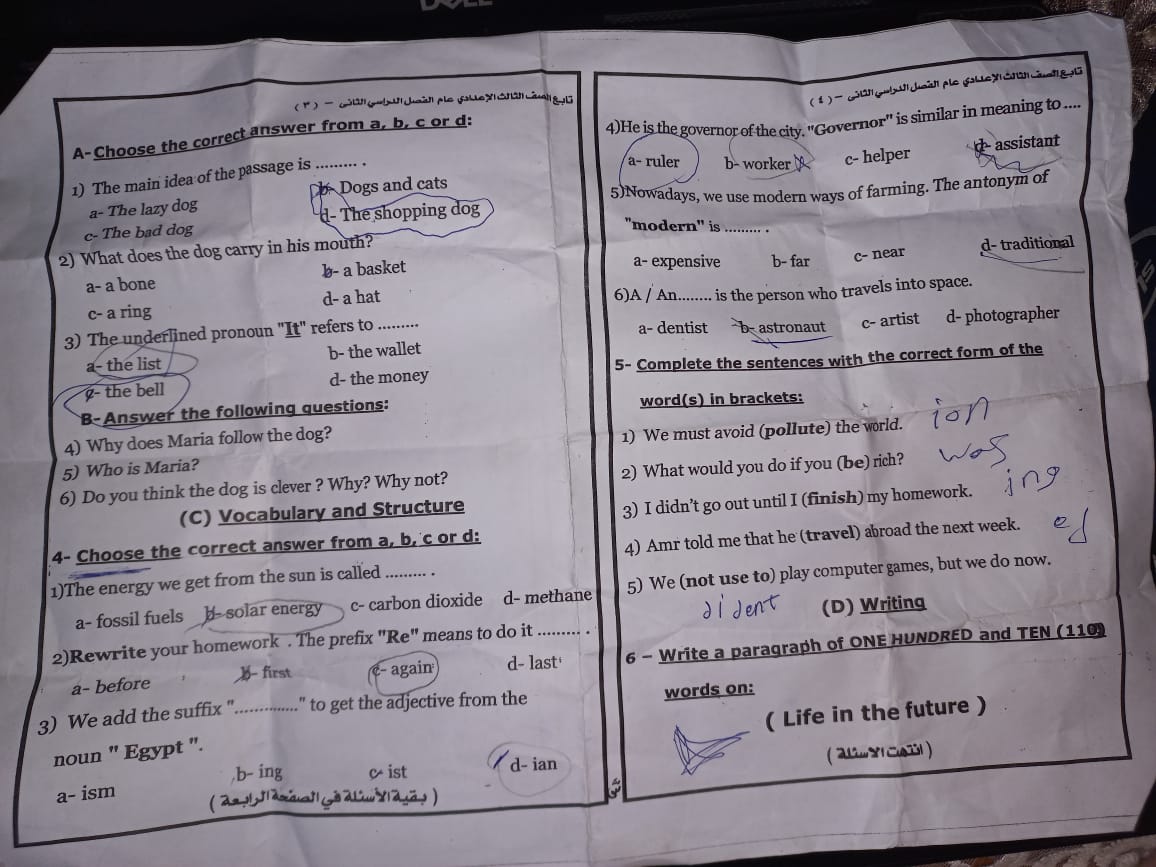 DELL
تابع الصف الثالث الإعدادي عام الفصل الدراسي الثانى – ( ٣ )
A- Choose the correct answer from a, b, c or d:
1) The main idea of the passage is ......... .
a- The lazy dog b- Dogs and cats
c- The bad dog d- The shopping dog
2) What does the dog carry in his mouth?
a- a bone b- a basket
c- a ring d- a hat
3) The underlined pronoun "It" refers to .........
a- the list b- the wallet
c- the bell d- the money
B- Answer the following questions:
4) Why does Maria follow the dog?
5) Who is Maria?
6) Do you think the dog is clever ? Why? Why not?
(C) Vocabulary and Structure
4- Choose the correct answer from a, b, c or d:
1)The energy we get from the sun is called ......... .
a- fossil fuels b- solar energy c- carbon dioxide d- methane
2)Rewrite your homework . The prefix "Re" means to do it ......... .
a- before b- first c- again d- last
3) We add the suffix "..............." to get the adjective from the
noun " Egypt ".
a- ism b- ing c- ist d- ian
( بقية الأسئلة في الصفحة الرابعة )
تابع الصف الثالث الإعدادي عام الفصل الدراسي الثانى – ( ٤ )
4)He is the governor of the city. "Governor" is similar in meaning to ....
a- ruler b- worker c- helper d- assistant
5)Nowadays, we use modern ways of farming. The antonym of
"modern" is ......... .
a- expensive b- far c- near d- traditional
6)A / An........ is the person who travels into space.
a- dentist b- astronaut c- artist d- photographer
5- Complete the sentences with the correct form of the
word(s) in brackets:
1) We must avoid (pollute) the world. ion
2) What would you do if you (be) rich? was
3) I didn't go out until I (finish) my homework. ing
4) Amr told me that he (travel) abroad the next week. ed
5) We (not use to) play computer games, but we do now.
dident
(D) Writing
6 – Write a paragraph of ONE HUNDRED and TEN (110)
words on:
( Life in the future )
( انتهت الاسئلة )